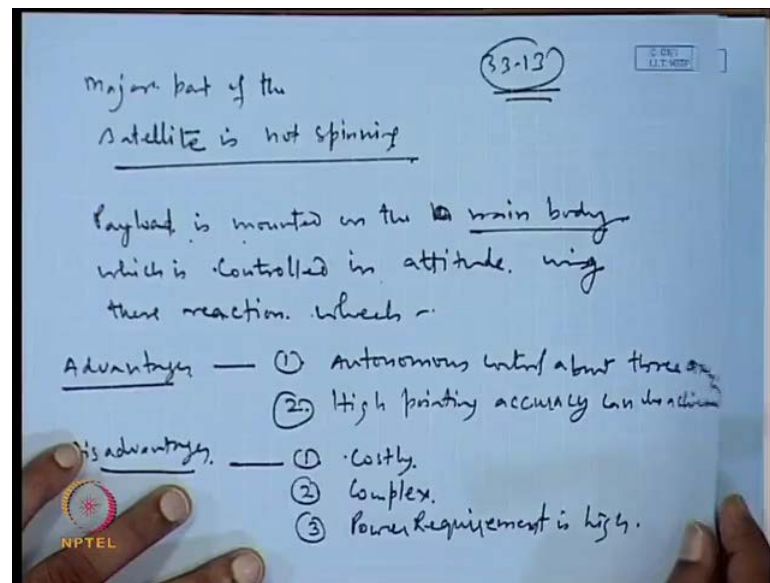 33-13
Major part of the
Satellite is not spinning
Payload is mounted on the main body
which is controlled in attitude. using
these reaction wheels
Advantages — ① Autonomous control about three
② High pointing accuracy can be
Disadvantages. — ① Costly.
② Complex.
③ Power Requirement is high.
NPTEL